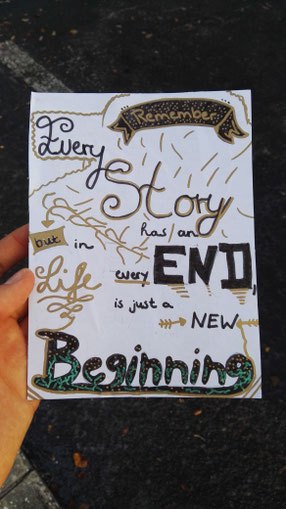 Remember
Every
Story
has an
but in
Life every END,
is just a
NEW
Beginning